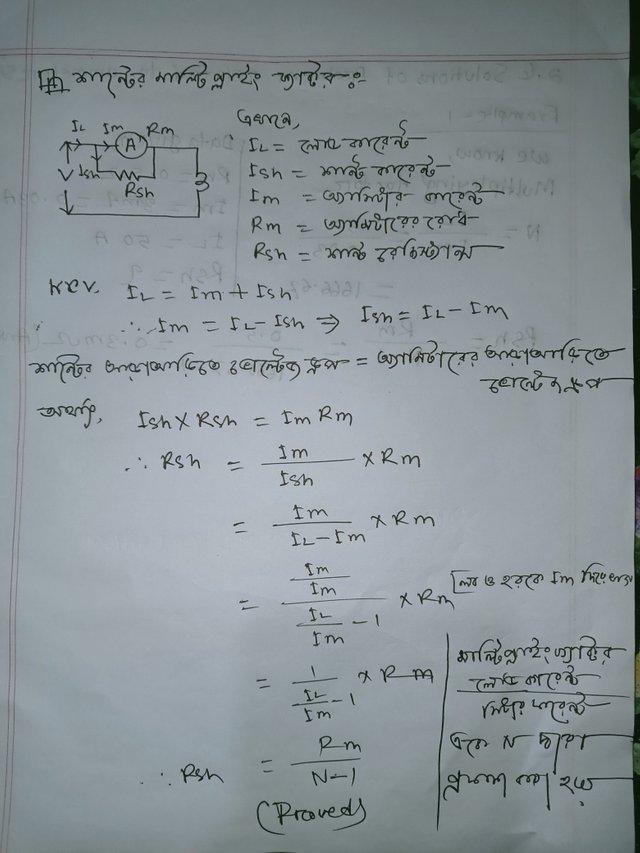 শান্টের মাল্টিপ্লাইং ফ্যাক্টর ঃ-
IL Im Rm
A
V Ish
Rsh
এখানে,
IL = লোড কারেন্ট
Ish = শান্ট কারেন্ট
Im = অ্যামিটার কারেন্ট
Rm = অ্যামিটারের রোধ
Rsh = শান্ট রেজিস্ট্যান্স
IL = Im + Ish
∴ Im = IL - Ish ⇒ Ish = IL - Im
শান্টের আড়াআড়িতে ভোল্টেজ ড্রপ = অ্যামিটারের আড়াআড়িতে
ভোল্টেজ ড্রপ
অর্থাৎ, Ish × Rsh = Im Rm
∴ Rsh = Im / Ish × Rm
= Im / (IL - Im) × Rm
= (Im / Im) / (IL / Im - 1) × Rm [লব ও হরকে Im দিয়ে ভাগ
= 1 / (IL / Im - 1) × Rm
∴ Rsh = Rm / (N-1)
(Proved)
মাল্টিপ্লাইং ফ্যাক্টর
লোড কারেন্ট
মিটার কারেন্ট
একে N দ্বারা
প্রকাশ করা হয়